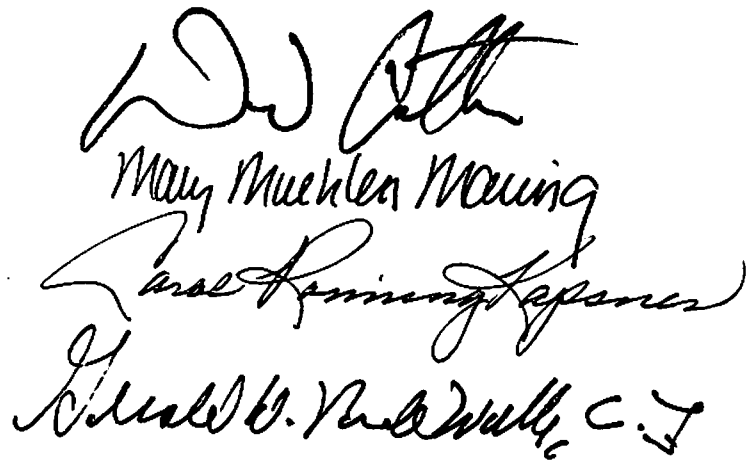 Mary Muehlen Maring
Carol Ronning Kapsner
Gerald W. VandeWalle, C.J.